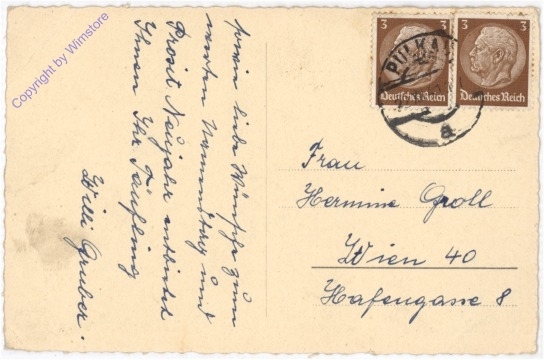 Copyright by Wimstore
sowie liebe Wünsche zum
werten Namenstag und
Prosit Neujahr entbietet
Ihnen Ihr Täufling
Willi Gruber.
3 3
3 3
PULKAU
a
Deutsches Reich
Deutsches Reich
Frau
Hermine Groll
Wien 40
Hafengasse 8